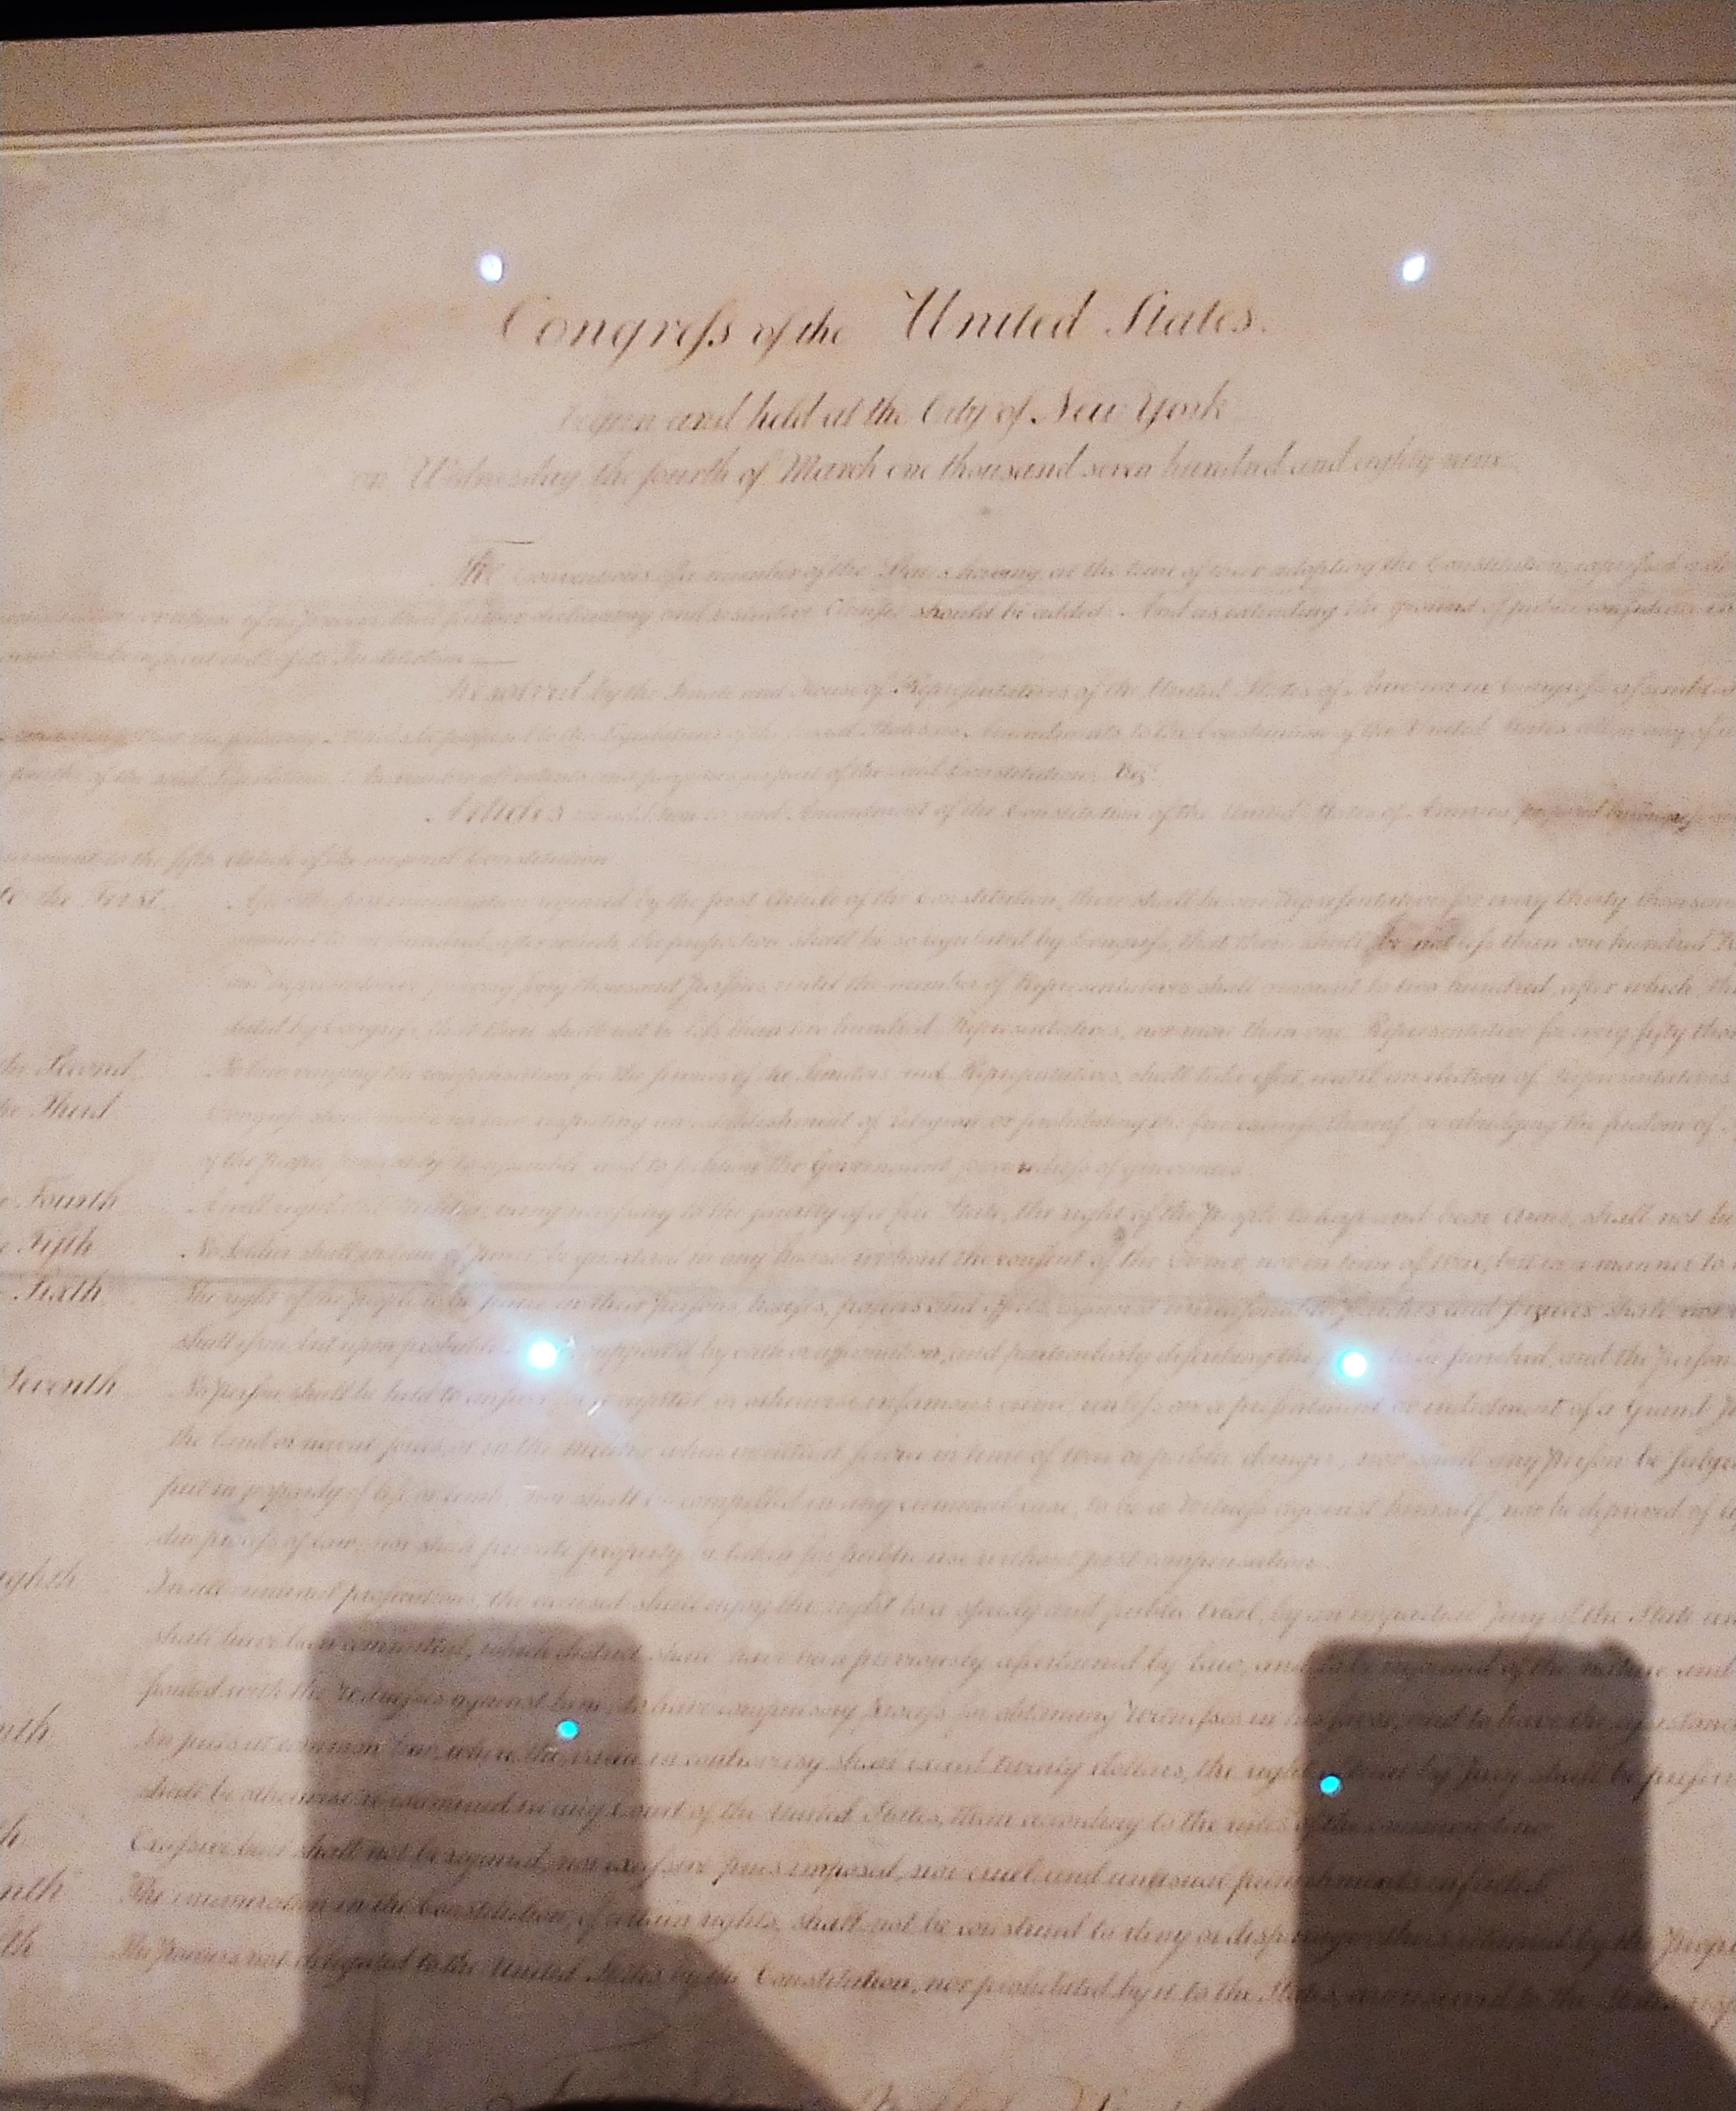 Congreſs of the United States.
begun and held at the City of New York
on Wednesday the fourth of March one thousand seven hundred and eighty nine
The Conventions of a number of the States having, at the time of their adopting the Constitution, expreſsed a
declaratory and restrictive Clauses should be added: And as extending the ground of public confidence in
ends of its Institution
Resolved by the Senate and House of Representatives of the United States of America in Congreſs aſsembled
that the following Articles be proposed to the Legislatures of the several States as Amendments to the Constitution of the United States, all or any of
of the said Legislatures, to be valid to all intents and purposes as part of the said Constitution; viz.
Articles in addition to, and Amendment of the Constitution of the United States of America, proposed by Congreſs
to the fifth Article of the original Constitution
the First After the first enumeration required by the first Article of the Constitution, there shall be one Representative for every thirty thousand
amount to one hundred, after which, the proportion shall be so regulated by Congreſs, that there shall be not leſs than one hundred
one Representative for every forty thousand persons, until the number of Representatives shall amount to two hundred, after which, the
by Congreſs, that there shall not be leſs than two hundred Representatives, nor more than one Representative for every fifty
the Second No law varying the compensation for the services of the Senators and Representatives, shall take effect, until an election of Representatives
the Third Congreſs shall make no law respecting an establishment of religion, or prohibiting the free exercise thereof, or abridging the freedom of
of the people peaceably to aſsemble, and to petition the Government for a redreſs of grievances
Fourth A well regulated Militia, being neceſsary to the security of a free State, the right of the People to keep and bear Arms, shall not be
Fifth No Soldier shall in time of peace be quartered in any house without the consent of the Owner, nor in time of war, but in a manner to
Sixth The right of the people to be secure in their persons, houses, papers and effects, against unreasonable searches and seizures shall not
shall iſsue, but upon probable supported by oath or affirmation, and particularly describing the to be searched, and the persons
Seventh No person shall be held to answer for a capital, or otherwise infamous crime, unleſs on a presentment or indictment of a Grand
the land or naval forces, or in the Militia, when in actual service in time of War or public danger; nor shall any person be
put in jeopardy of life or limb, nor shall be compelled in any criminal case, to be a witneſs against himself, nor be deprived of
due proceſs of law; nor shall private property be taken for public use without just compensation.
In all criminal prosecutions, the accused shall enjoy the right to a speedy and public trial, by an impartial Jury of the State
shall have been committed, which district shall have been previously ascertained by law, and to be informed of the nature and
with the witneſses against him, to have compulsory proceſs for obtaining witneſses in his favor, and to have the
In suits at common law, where the value in controversy shall exceed twenty dollars, the right of trial by Jury shall be
shall be otherwise re-examined in any Court of the United States, than according to the rules of the common law
Exceſsive bail shall not be required, nor exceſsive fines imposed, nor cruel and unusual punishments inflicted
The enumeration in the Constitution, of certain rights, shall not be construed to deny or disparage others retained by the People
The Powers not delegated to the United States by the Constitution, nor prohibited by it to the States, are reserved to the States